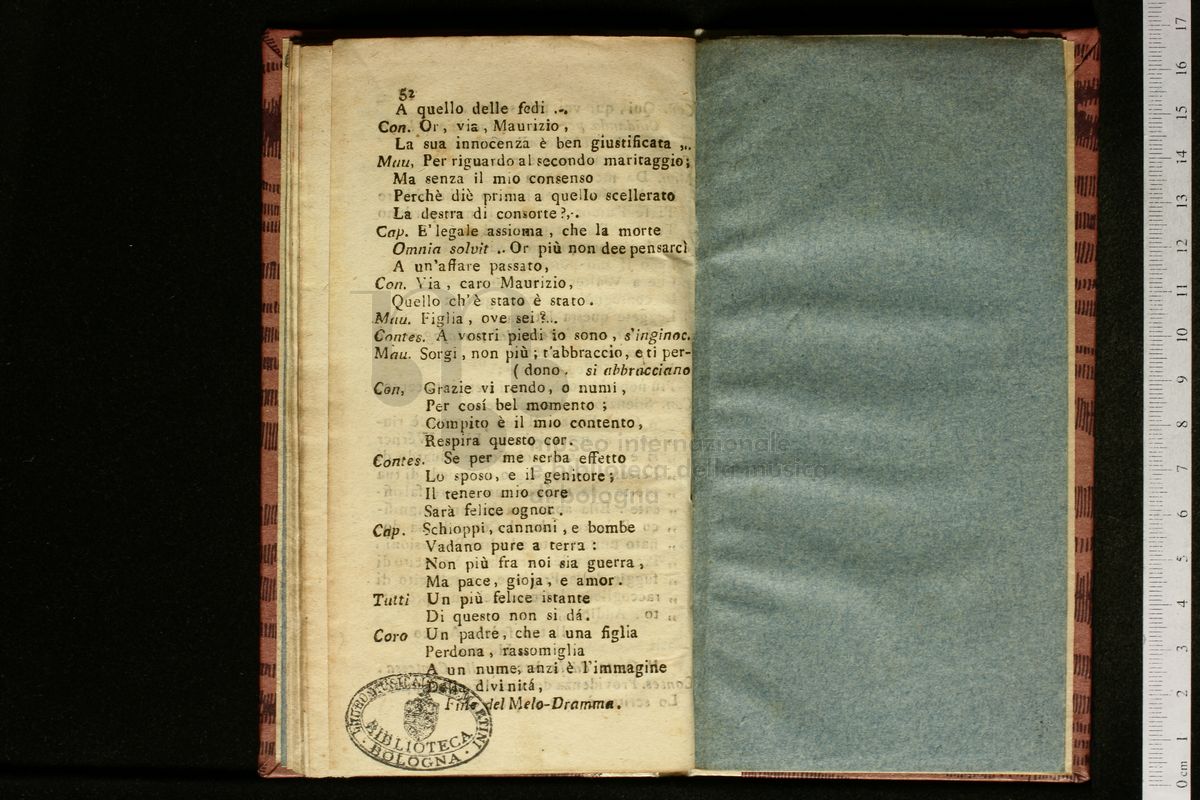 52
A quello delle fedi .-.
Con. Or, via, Maurizio,
La sua innocenza è ben giustificata ,.
Mau, Per riguardo al secondo maritaggio;
Ma senza il mio consenso
Perchè diè prima a quello scellerato
La destra di consorte?,.
Cap. E' legale assioma, che la morte
Omnia solvit .. Or più non dee pensarci
A un'affare passato,
Con. Via, caro Maurizio,
Quello ch'è stato è stato.
Mau. Figlia, ove sei?...
Contes. A vostri piedi io sono, s'inginoc.
Mau. Sorgi, non più; t'abbraccio, e ti per-
(dono. si abbracciano
Con, Grazie vi rendo, o numi,
Per cosí bel momento;
Compito è il mio contento,
Respira questo cor.
Contes. Se per me serba effetto
Lo sposo, e il genitore;
Il tenero mio core
Sarà felice ognor.
Cap. Schioppi, cannoni, e bombe
Vadano pure a terra:
Non più fra noi sia guerra,
Ma pace, gioja, e amor.
Tutti Un più felice istante
Di questo non si dá.
Coro Un padre, che a una figlia
Perdona, rassomiglia
A un nume, anzi è l'immagine
divinitá,
Fine del Melo-Dramma.
BIBLIOTECA
BOLOGNA
museo internazionale
e biblioteca della musica
di bologna
0 cm 1 2 3 4 5 6 7 8 9 10 11 12 13 14 15 16 17